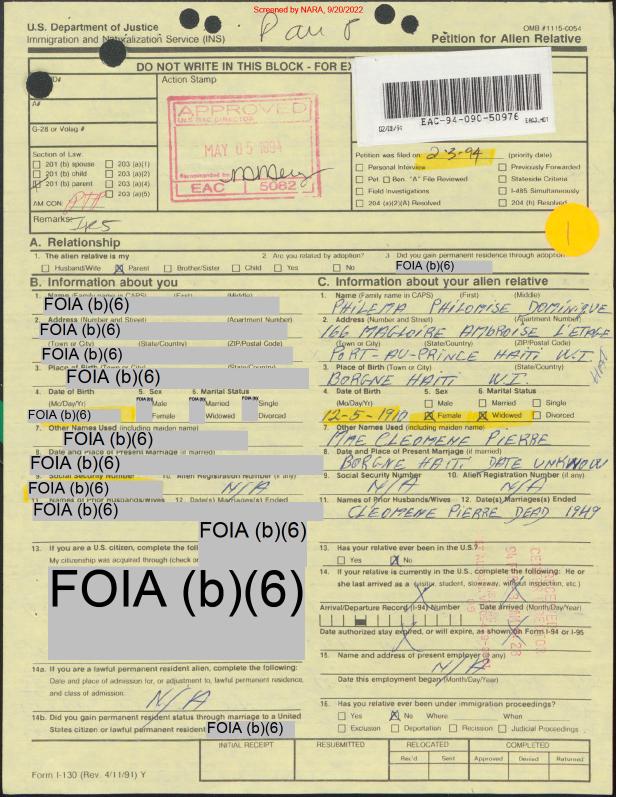 Screened by NARA, 9/20/2022
U.S. Department of Justice
Immigration and Naturalization Service (INS)
OMB #1115-0054
Petition for Alien Relative
DO NOT WRITE IN THIS BLOCK - FOR EX
ID#
A#
G-28 or Volag #
Section of Law
201 (b) spouse
201 (b) child
201 (b) parent
203 (a)(1)
203 (a)(2)
203 (a)(4)
203 (a)(5)
AM CON.
Remarks:
Action Stamp
APPROVED
MAY 05 1994
EAC 5082
02/03/94
EAC-94-090-50976
Petition was filed on 2-3-94 (priority date)
Personal Interview
Previously Forwarded
Pet. Ben. "A" File Reviewed
Stateside Criteria
Field Investigations
I-485 Simultaneously
204 (a)(2)(A) Resolved
204 (h) Resolved
A. Relationship
1. The alien relative is my
Husband/Wife X Parent Brother/Sister Child
2. Are you related by adoption?
Yes No
3. Did you gain permanent residence through adoption
FOIA (b)(6)
B. Information about you
1. Name (Family name in CAPS) (First) (Middle)
FOIA (b)(6)
2. Address (Number and Street) (Apartment Number)
FOIA (b)(6)
(Town or City) (State/Country) (ZIP/Postal Code)
FOIA (b)(6)
3. Place of Birth (Town or City) (State/Country)
FOIA (b)(6)
4. Date of Birth (Mo/Day/Yr) 5. Sex 6. Marital Status
FOIA (b)(6)
Male Married Single
Female Widowed Divorced
7. Other Names Used (including maiden name)
FOIA (b)(6)
8. Date and Place of Present Marriage (if married)
FOIA (b)(6)
9. Social Security Number 10. Alien Registration Number (if any)
FOIA (b)(6) N/A
11. Names of Prior Husbands/Wives 12. Date(s) Marriage(s) Ended
FOIA (b)(6)
FOIA (b)(6)
13. If you are a U.S. citizen, complete the foll
My citizenship was acquired through (check on
FOIA (b)(6)
14a. If you are a lawful permanent resident alien, complete the following:
Date and place of admission for, or adjustment to, lawful permanent residence,
and class of admission:
N/A
14b. Did you gain permanent resident status through marriage to a United
States citizen or lawful permanent resident FOIA (b)(6)
C. Information about your alien relative
1. Name (Family name in CAPS) (First) (Middle)
PHILEMA PHILOMISE DOMINIQUE
2. Address (Number and Street) (Apartment Number)
166 MAGLOIRE AMBROISE L'ETAGE
(Town or City) (State/Country) (ZIP/Postal Code)
PORT-AU-PRINCE HAITI W.I.
3. Place of Birth (Town or City) (State/Country)
BORGNE HAITI W.I.
4. Date of Birth (Mo/Day/Yr) 5. Sex 6. Marital Status
Male Married Single
12-5-1910 X Female X Widowed Divorced
7. Other Names Used (including maiden name)
MME CLEOMENE PIERRE
8. Date and Place of Present Marriage (if married)
BORGNE HAITI DATE UNKNOWN
9. Social Security Number 10. Alien Registration Number (if any)
N/A N/A
11. Names of Prior Husbands/Wives 12. Date(s) Marriage(s) Ended
CLEOMENE PIERRE DEAD 1949
13. Has your relative ever been in the U.S.?
Yes X No
14. If your relative is currently in the U.S., complete the following: He or
she last arrived as a (visitor, student, stowaway, without inspection, etc.)
Arrival/Departure Record (I-94) Number Date arrived (Month/Day/Year)
Date authorized stay expired, or will expire, as shown on Form I-94 or I-95
15. Name and address of present employer (if any)
N/A
Date this employment began (Month/Day/Year)
16. Has your relative ever been under immigration proceedings?
Yes X No Where When
Exclusion Deportation Recission Judicial Proceedings
INITIAL RECEIPT RESUBMITTED RELOCATED COMPLETED
Rec'd Sent Approved Denied Returned
Form I-130 (Rev. 4/11/91) Y